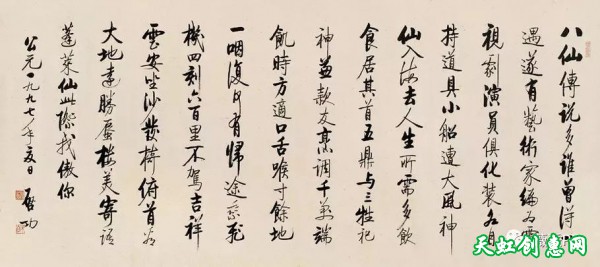 八仙傳説多誰曾得
遇遂有藝術家編為電
視劇演員俱化装各自
持道具小船遭大風神
仙入海去人生所需多飲
食居其首五鼎与三牲祀
神兼款友烹调千萬端
飢時方適口舌喉寸餘地
一咽復何有歸途乘飛
機四刻六百里不駕吉祥
雲安坐沙發椅俯首看
大地遠勝蜃樓美寄語
蓬萊仙此際我傲你
公元一九九七年夏日 啟功
天虹创意网